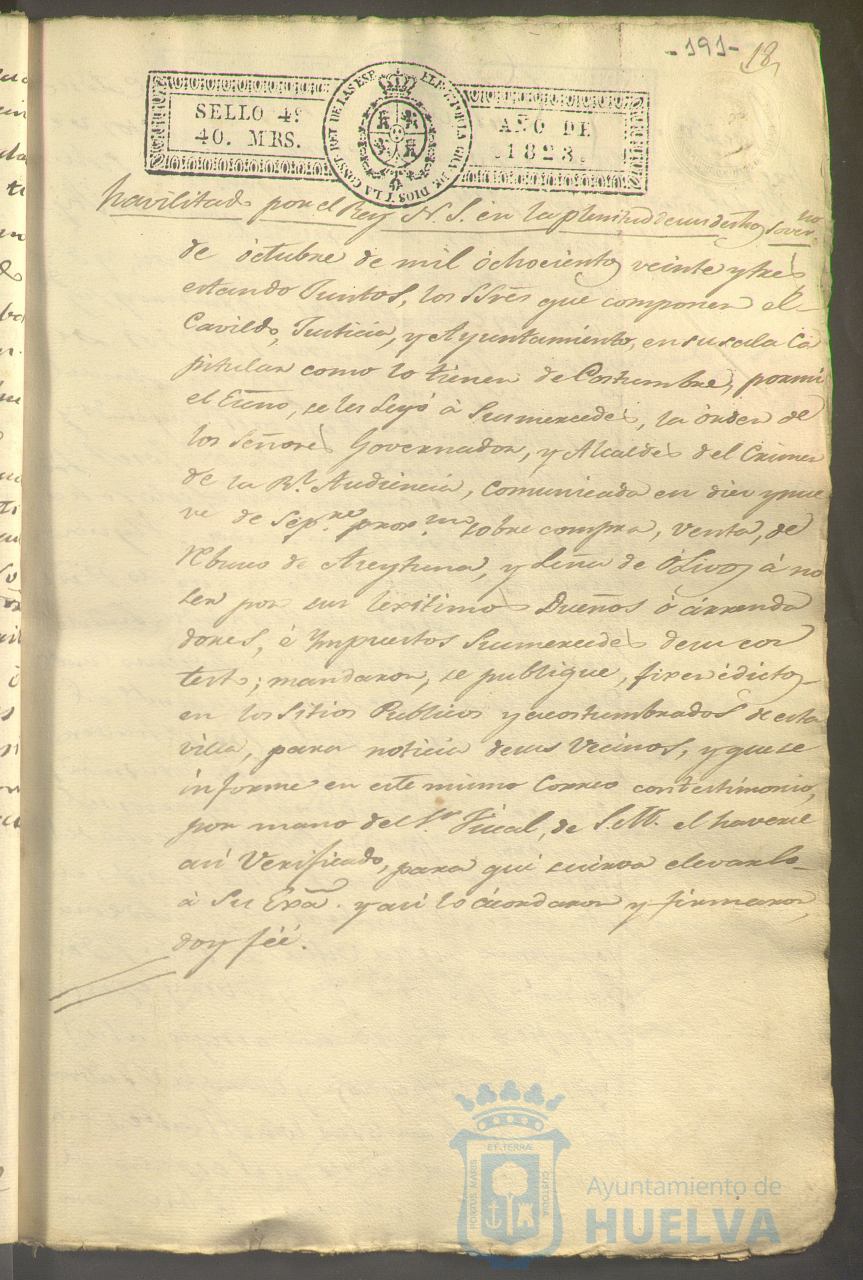 -191- 18,
SELLO 4º AÑO DE
40. MRS. 1823.
FERN. 7º POR LA GR. DE DIOS Y LA CONST. REY DE LAS ESP.
havilitado por el Rey N. S. en la plenitud de sus drchos sover.nos
de octubre de mil ochocientos veinte y tres
estando Juntos, los SSres que componen el
Cavildo, Justicia, y Ayuntamiento, en su sala Ca
pitular como lo tienen de Costumbre, por mi
el Esno, se les Leyó à Susmercedes, la òrden de
los Señores Governador, y Alcaldes del Crimen
de la Rl. Audiencia, comunicada en diez y nue
ve de Sepre. proxmo. sobre compra, venta, de
Rebusco de Azeytuna, y Leña de Olivos á no
ser por sus lexitimos Dueños ò arrenda
dores, é Ympuestos Susmercedes de su con
testo; mandaron, se publique, fixen édictos
en los Sitios Publicos y acostumbrados de esta
villa, para noticia de sus Vecinos, y que se
informe en este mismo Correo con testimonio,
por mano del Sor. Fiscal, de S.M. el haverse
asi Verificado, para qué se sirva elevarlo
à Su Exa. y asi lo ácordaron y firmaron,
doy féé.
PORTUS MARIS ET TERRAE CUSTODIA
Ayuntamiento de
HUELVA